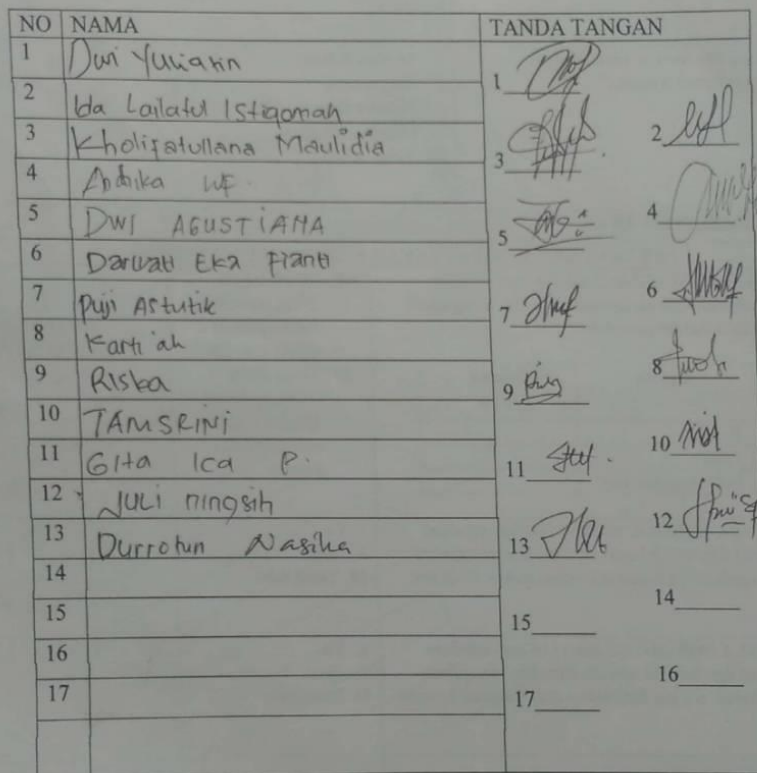 NO NAMA TANDA TANGAN
1 Dwi Yuliatin 1
2 Ida Lailatul Istiqomah 2
3 Kholifatullana Maulidia 3
4 Andika WF. 4
5 DWI AGUSTIANA 5
6 Darwati Eka Fianti 6
7 Puji Astutik 7
8 Karti'ah 8
9 Riska 9
10 TAMSRINI 10
11 Gita Ica P. 11
12 JULI ningsih 12
13 Durrotun Nasiha 13
14 14
15 15
16 16
17 17